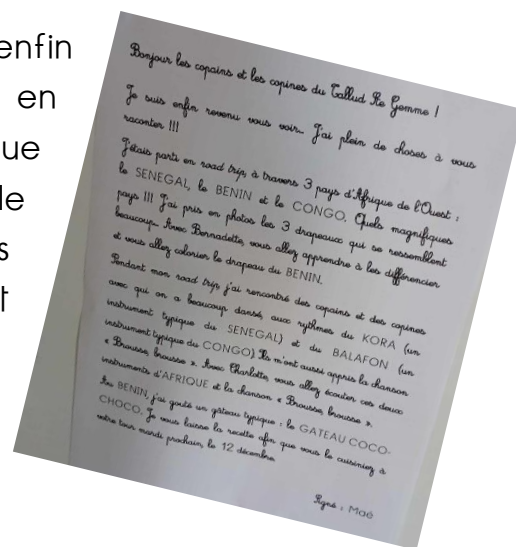 enfin
en
ue
le
s
t
Bonjour les copains et les copines du Tallud Ste Gemme !
Je suis enfin revenu vous voir... J'ai plein de choses à vous
raconter !!!
J'étais parti en road trip, à travers 3 pays d'Afrique de l'Ouest :
le SENEGAL, le BENIN et le CONGO. Quels magnifiques
pays !!! J'ai pris en photos les 3 drapeaux qui se ressemblent
beaucoup. Avec Bernadette, vous allez apprendre à les différencier
et vous allez colorier le drapeau du BENIN.
Pendant mon road trip, j'ai rencontré des copains et des copines
avec qui on a beaucoup dansé, aux rythmes du KORA (un
instrument typique du SENEGAL) et du BALAFON (un
instrument typique du CONGO) Ils m'ont aussi appris la chanson
« Brousse, brousse ». Avec Charlotte, vous allez écouter ces deux
instruments d'AFRIQUE et la chanson « Brousse, brousse ».
Au BENIN, j'ai gouté un gâteau typique : le GATEAU COCO-
CHOCO. Je vous laisse la recette afin que vous le cuisiniez à
votre tour mardi prochain, le 12 décembre.
Signé : Maé